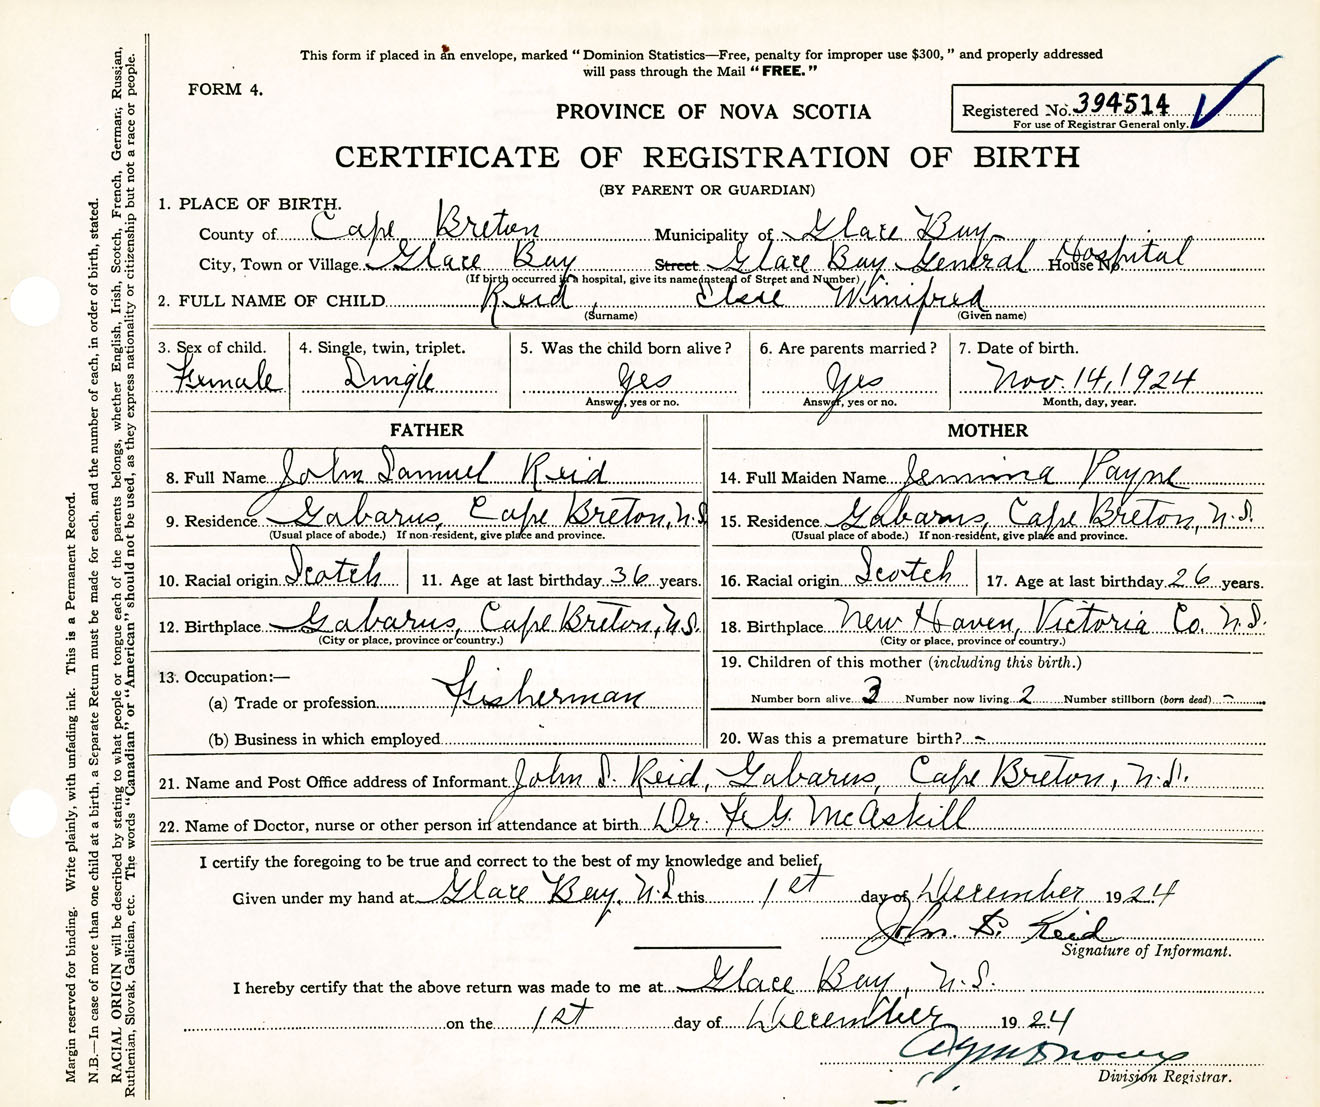 This form if placed in an envelope, marked "Dominion Statistics—Free, penalty for improper use $300," and properly addressed
will pass through the Mail "FREE."
FORM 4.
PROVINCE OF NOVA SCOTIA
Registered No. 394514
For use of Registrar General only.
CERTIFICATE OF REGISTRATION OF BIRTH
(BY PARENT OR GUARDIAN)
1. PLACE OF BIRTH.
County of Cape Breton Municipality of Glace Bay
City, Town or Village Glace Bay Street Glace Bay General Hospital House No.
(If birth occurred in a hospital, give its name instead of Street and Number)
2. FULL NAME OF CHILD Reid, Elsie Winifred
(Surname) (Given name)
3. Sex of child. 4. Single, twin, triplet. 5. Was the child born alive? 6. Are parents married? 7. Date of birth.
Female Single Yes Yes Nov. 14, 1924
Answer, yes or no. Answer, yes or no. Month, day, year.
FATHER MOTHER
8. Full Name John Samuel Reid 14. Full Maiden Name Jemima Payne
9. Residence Gabarus, Cape Breton, N.S. 15. Residence Gabarus, Cape Breton, N.S.
(Usual place of abode.) If non-resident, give place and province. (Usual place of abode.) If non-resident, give place and province.
10. Racial origin Scotch 11. Age at last birthday 36 years. 16. Racial origin Scotch 17. Age at last birthday 26 years.
12. Birthplace Gabarus, Cape Breton, N.S. 18. Birthplace New Haven, Victoria Co. N.S.
(City or place, province or country.) (City or place, province or country.)
13. Occupation:— 19. Children of this mother (including this birth.)
(a) Trade or profession Fisherman Number born alive 3 Number now living 2 Number stillborn (born dead) –
(b) Business in which employed 20. Was this a premature birth? –
21. Name and Post Office address of Informant John S. Reid, Gabarus, Cape Breton, N.S.
22. Name of Doctor, nurse or other person in attendance at birth Dr. F. G. McAskill
I certify the foregoing to be true and correct to the best of my knowledge and belief,
Given under my hand at Glace Bay, N.S this 1st day of December 1924
John S. Reid
Signature of Informant.
I hereby certify that the above return was made to me at Glace Bay, N.S.
on the 1st day of December 1924
Division Registrar.
Margin reserved for binding. Write plainly, with unfading ink. This is a Permanent Record.
N.B.—In case of more than one child at a birth, a Separate Return must be made for each, and the number of each, in order of birth, stated.
RACIAL ORIGIN will be described by stating to what people or tongue each of the parents belongs, whether English, Irish, Scotch, French, German, Russian,
Ruthenian, Slovak, Galician, etc. The words "Canadian" or "American" should not be used, as they express nationality or citizenship but not a race or people.